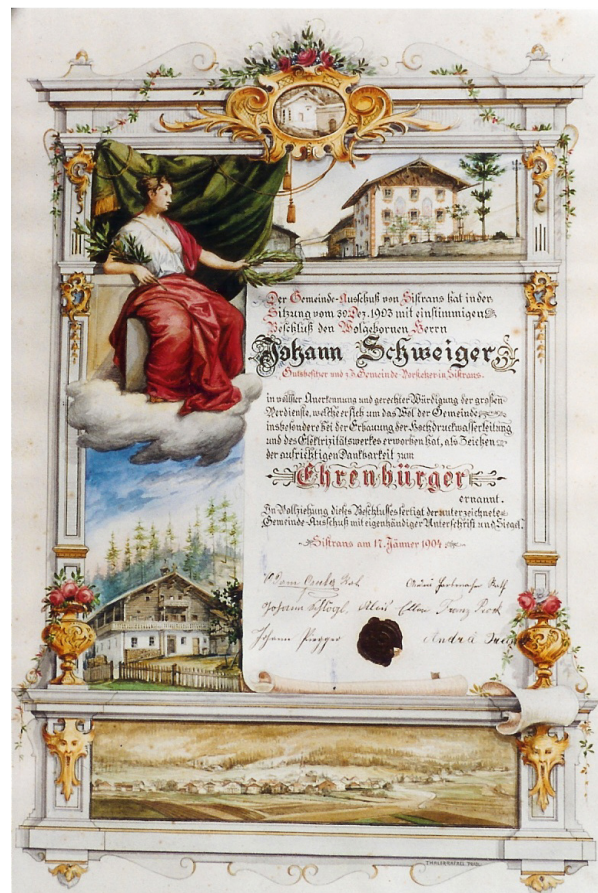 Der Gemeinde-Ausschuß von Sistrans hat in der
Sitzung vom 30. Dez. 1903 mit einstimmigen
Beschluß den Wolgebornen Herrn
Johann Schweiger
Gutsbesitzer und z. Z. Gemeinde-Vorsteher in Sistrans.
in vollster Anerkennung und gerechter Würdigung der großen
Verdienste, welche er sich um das Wol der Gemeinde
insbesondere bei der Erbauung der Hochdruckwasserleitung
und des Elektrizitätswerkes erworben hat, als Zeichen
der aufrichtigen Dankbarkeit zum
Ehrenbürger
ernannt.
In Vollziehung dieses Beschlusses fertigt der unterzeichnete
Gemeinde-Ausschuß mit eigenhändiger Unterschrift und Siegel.
Sistrans am 17. Jänner 1904
Johann Alois Franz
Johann Piegger Andrä